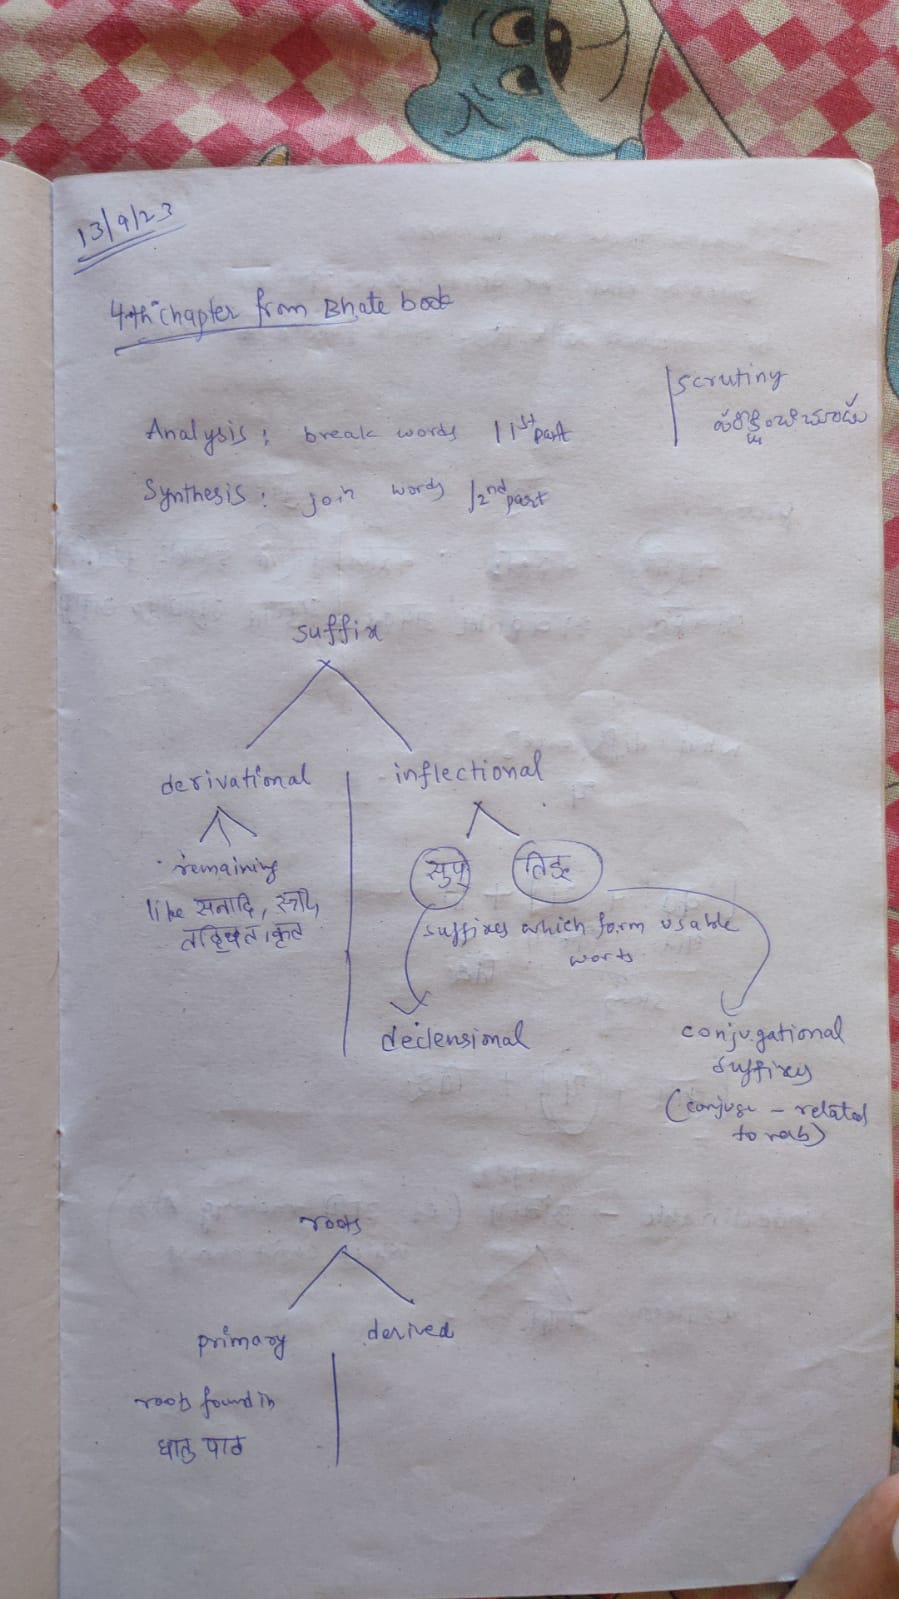 13/9/23
4th chapter from Bhate book
scrutiny
Analysis : break words | 1st part
Synthesis : join words | 2nd part
suffix
derivational | inflectional
remaining
सुप् तिङ्
like सनादि, स्त्री,
तद्धित, कृत्
suffixes which form usable
words
declensional
conjugational
suffixes
(conjuga - related
to verb)
roots
primary derived
roots found in
धातु पाठ